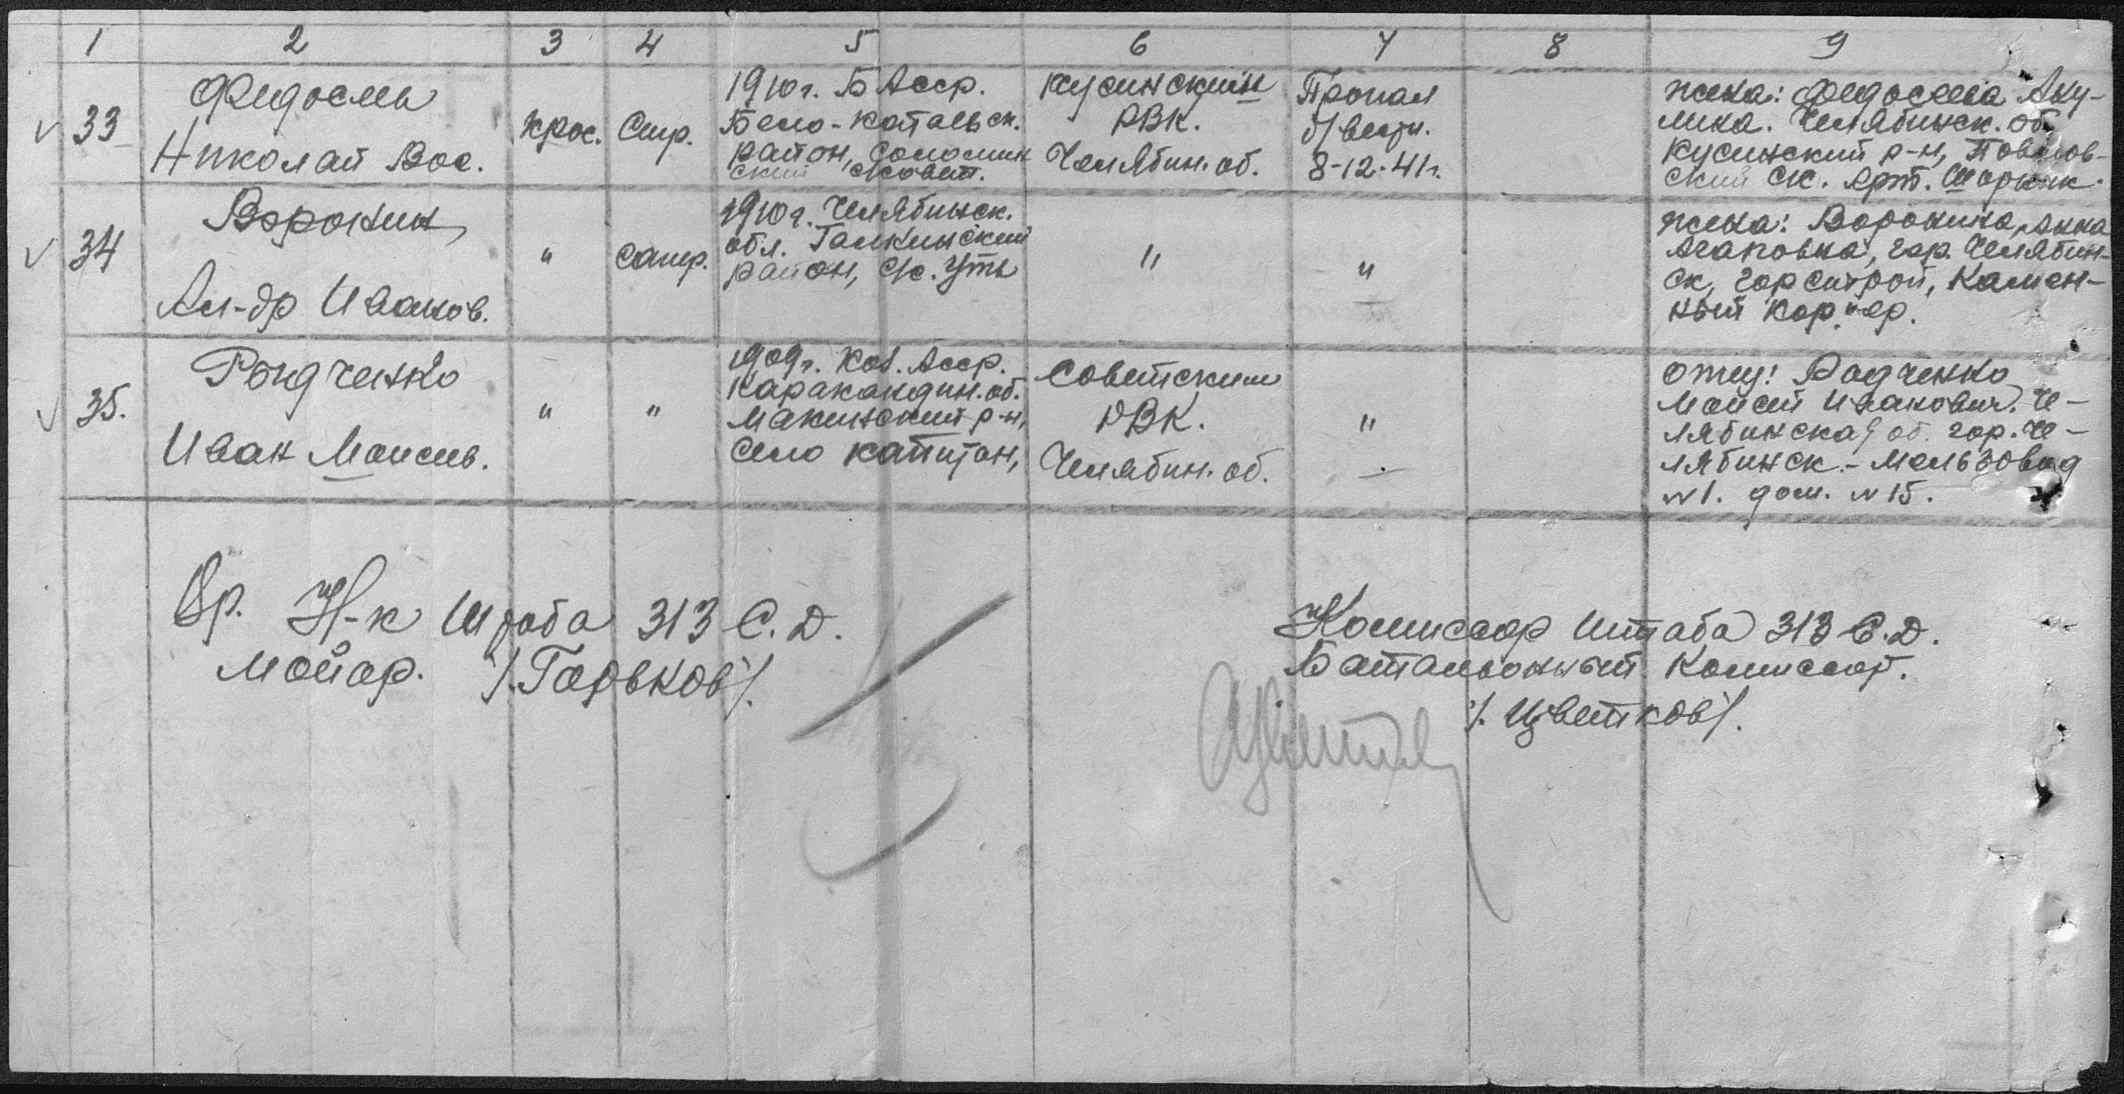 1 2 3 4 5 6 7 8 9
33
Федосеев
Николай Вас.
Крас.
Стр.
1910г. Б Асср.
Бело-Катайск.
район,
ский совет.
Кусинский
РВК.
Челябин. об.
Пропал
б/вести.
8-12-41г.
жена: Федосеева Аку-
лина. Челябинск. об
Кусинский р-н,
ский ск. Арт.
34
Воронин
Ал-др Иванов.
"
сапер.
1910г. Челябинск.
обл. Галкинский
район, с/с. Усть
"
"
жена: Воронина Анна
Агаповна, гор. Челябин-
ск, горситрой, Камен-
ный Кар.
35.
Радченко
Иван Моисеев.
"
"
1909г. Каз. Асср.
Каракандин. об.
Макинский р-н,
село Капитан,
Советским
РВК.
Челябин. об.
"
отец: Радченко
Моисей Иванович. Че-
лябинская об. гор. Че-
лябинск. - Мельзавод
№1. дом. №15.
Вр. Н-к Штаба 313 С.Д.
Майор. /.Гарьков/.
Комиссар штаба 313 С.Д.
Батальонный Комиссар.
/. Цветков/.